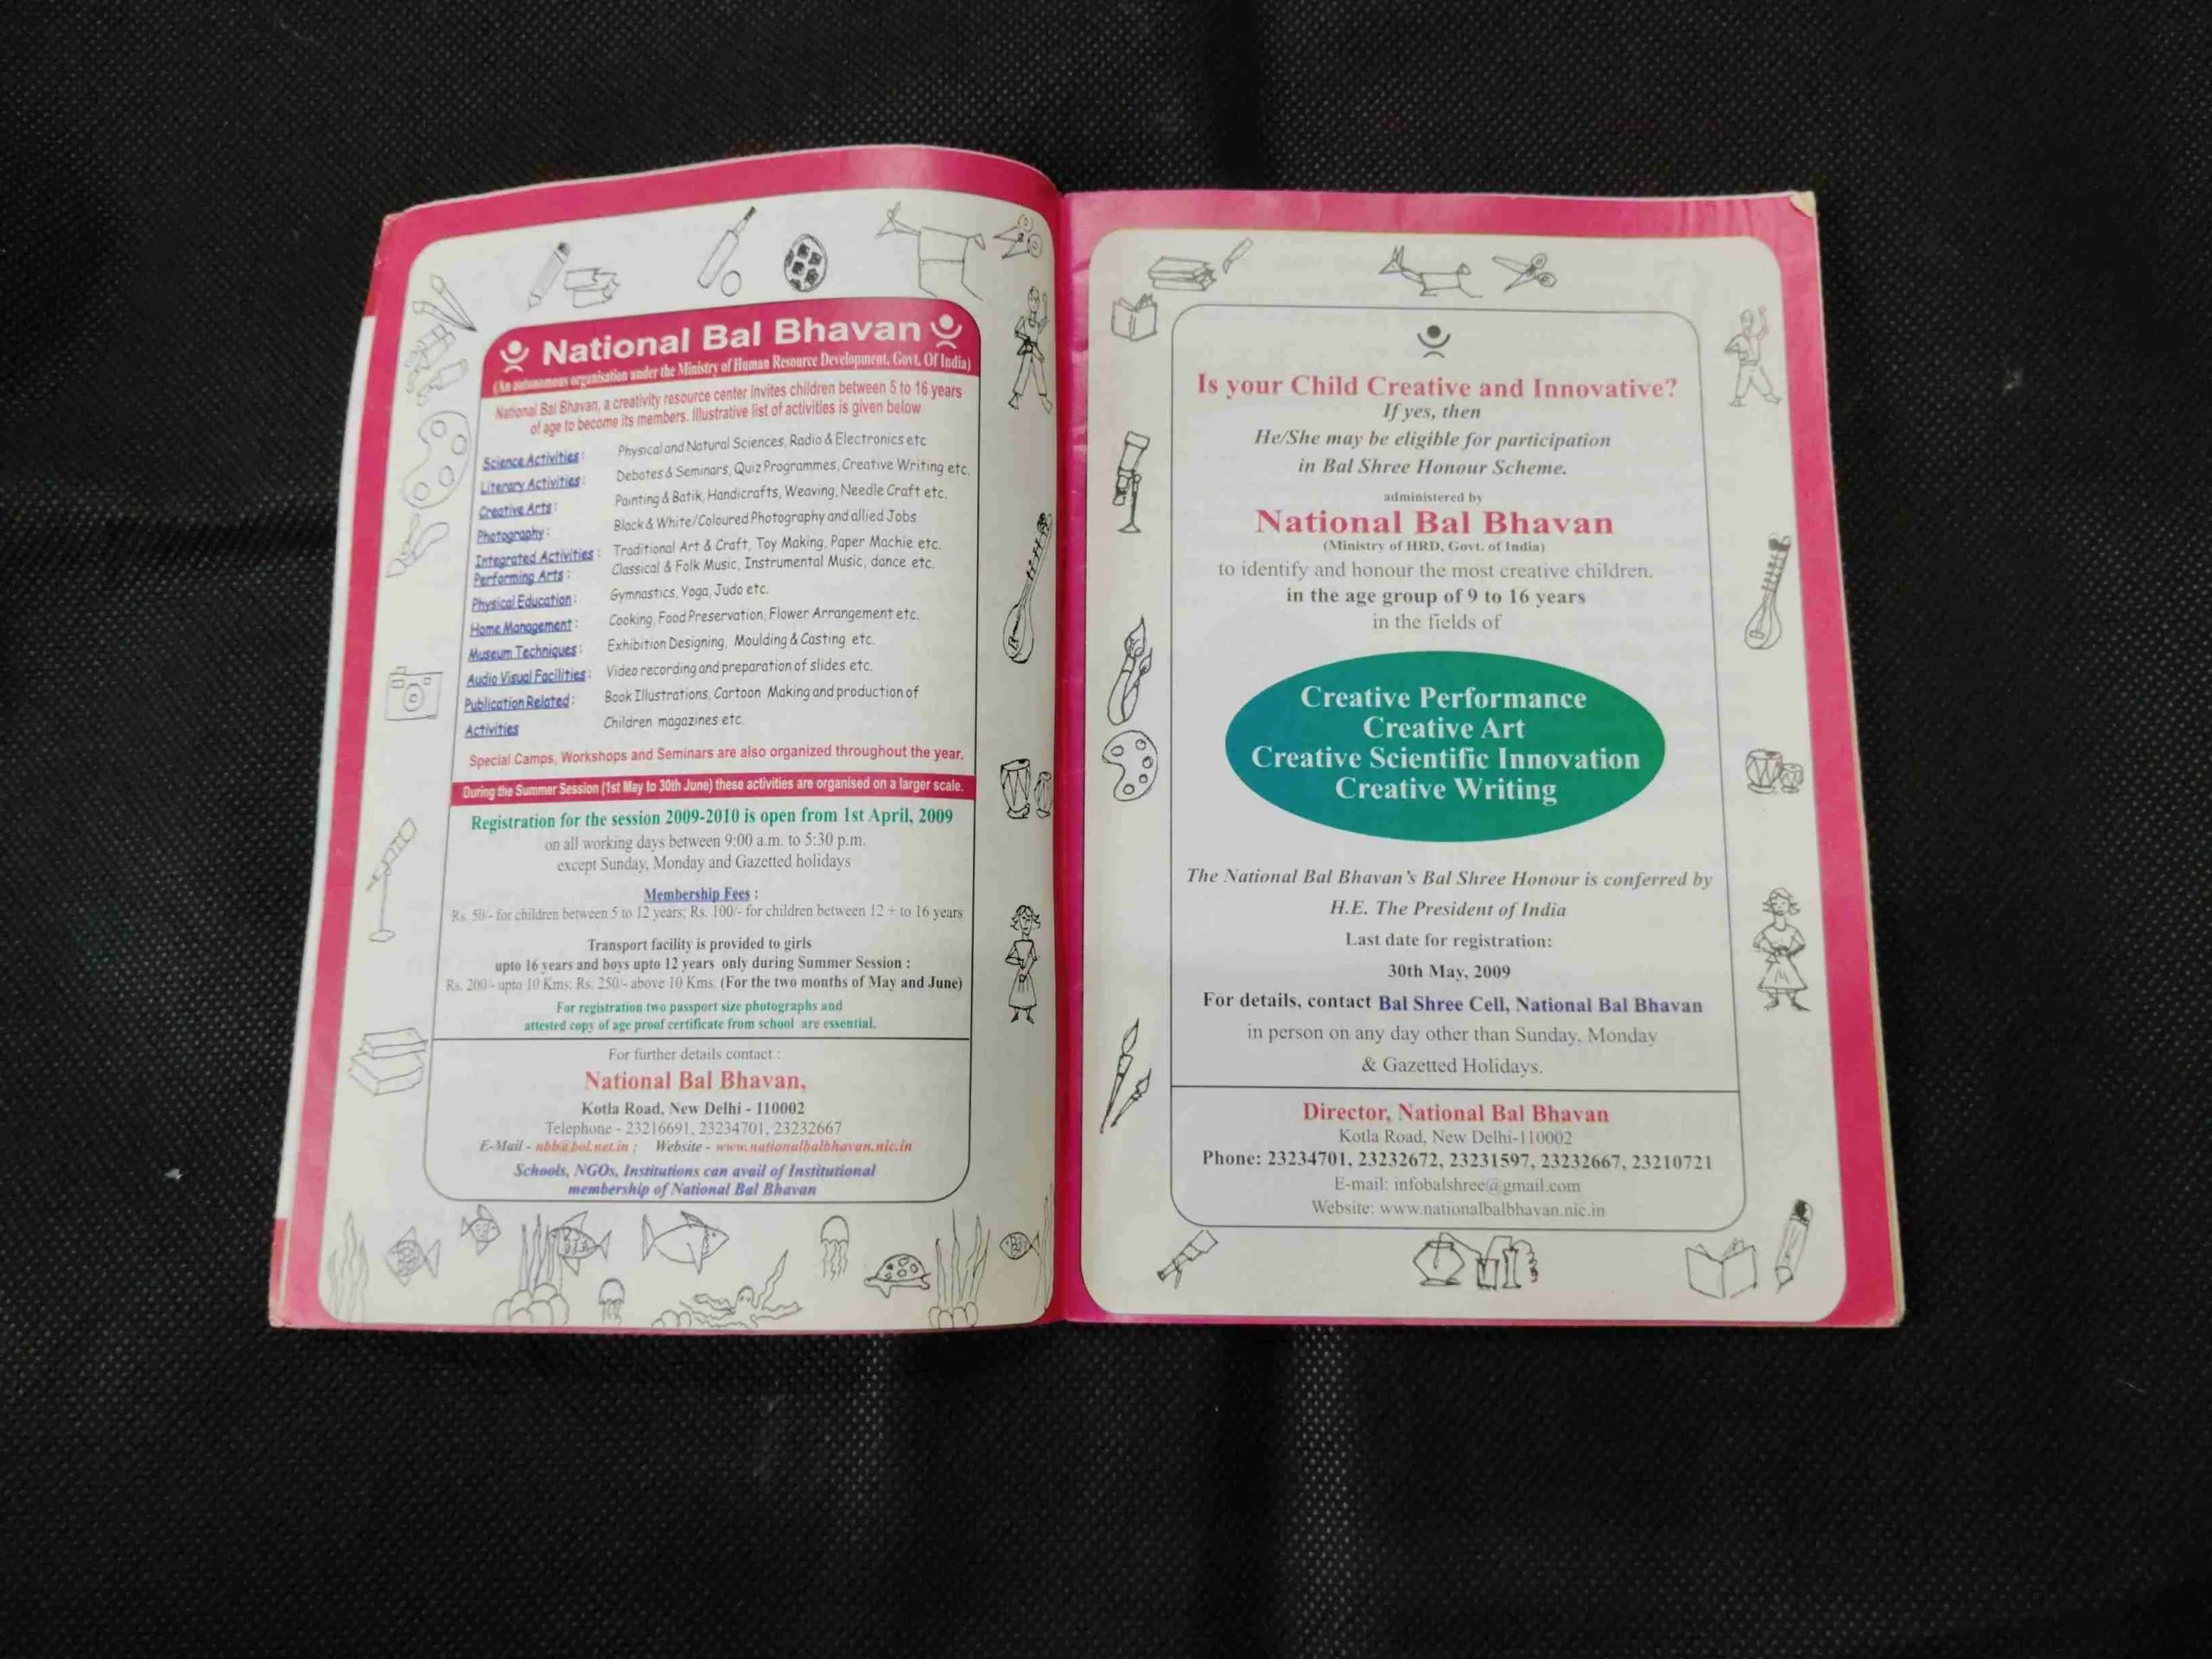 National Bal Bhavan
(An autonomous organisation under the Ministry of Human Resource Development, Govt. Of India)
National Bal Bhavan, a creativity resource center invites children between 5 to 16 years
of age to become its members. Illustrative list of activities is given below
Science Activities : Physical and Natural Sciences, Radio & Electronics etc
Literary Activities : Debates & Seminars, Quiz Programmes, Creative Writing etc.
Creative Arts : Painting & Batik, Handicrafts, Weaving, Needle Craft etc.
Photography : Black & White/Coloured Photography and allied Jobs
Integrated Activities : Traditional Art & Craft, Toy Making, Paper Machie etc.
Performing Arts : Classical & Folk Music, Instrumental Music, dance etc.
Physical Education : Gymnastics, Yoga, Judo etc.
Home Management : Cooking, Food Preservation, Flower Arrangement etc.
Museum Techniques : Exhibition Designing, Moulding & Casting etc.
Audio Visual Facilities : Video recording and preparation of slides etc.
Publication Related : Book Illustrations, Cartoon Making and production of
Activities Children magazines etc.
Special Camps, Workshops and Seminars are also organized throughout the year.
During the Summer Session (1st May to 30th June) these activities are organised on a larger scale.
Registration for the session 2009-2010 is open from 1st April, 2009
on all working days between 9:00 a.m. to 5:30 p.m.
except Sunday, Monday and Gazetted holidays
Membership Fees :
Rs. 50/- for children between 5 to 12 years; Rs. 100/- for children between 12 + to 16 years
Transport facility is provided to girls
upto 16 years and boys upto 12 years only during Summer Session :
Rs. 200/- upto 10 Kms; Rs. 250/- above 10 Kms. (For the two months of May and June)
For registration two passport size photographs and
attested copy of age proof certificate from school are essential.
For further details contact :
National Bal Bhavan,
Kotla Road, New Delhi - 110002
Telephone - 23216691, 23234701, 23232667
E-Mail - nbb@bol.net.in ; Website - www.nationalbalbhavan.nic.in
Schools, NGOs, Institutions can avail of Institutional
membership of National Bal Bhavan
Is your Child Creative and Innovative?
If yes, then
He/She may be eligible for participation
in Bal Shree Honour Scheme.
administered by
National Bal Bhavan
(Ministry of HRD, Govt. of India)
to identify and honour the most creative children.
in the age group of 9 to 16 years
in the fields of
Creative Performance
Creative Art
Creative Scientific Innovation
Creative Writing
The National Bal Bhavan's Bal Shree Honour is conferred by
H.E. The President of India
Last date for registration:
30th May, 2009
For details, contact Bal Shree Cell, National Bal Bhavan
in person on any day other than Sunday, Monday
& Gazetted Holidays.
Director, National Bal Bhavan
Kotla Road, New Delhi-110002
Phone: 23234701, 23232672, 23231597, 23232667, 23210721
E-mail: infobalshree@gmail.com
Website: www.nationalbalbhavan.nic.in